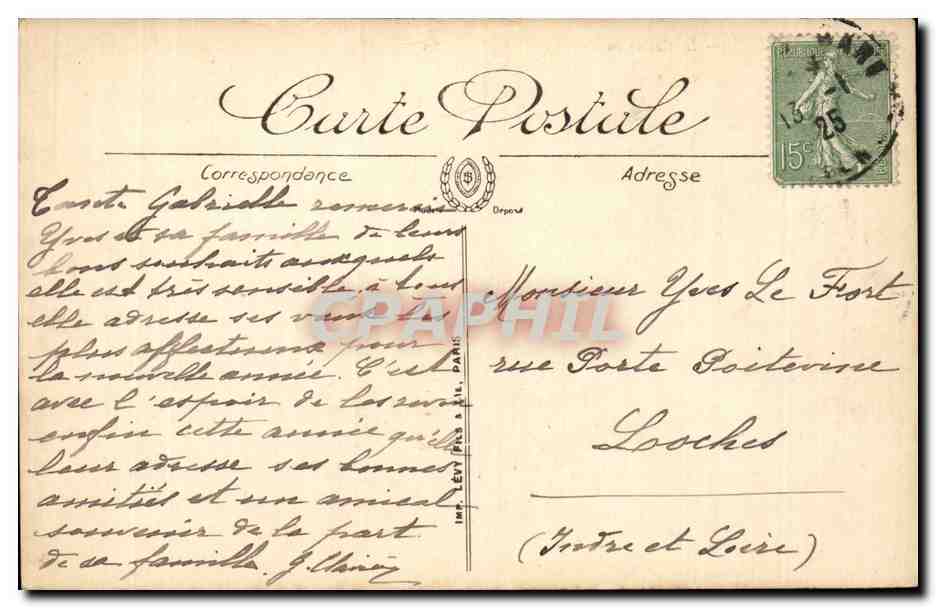 Carte Postale
Correspondance
Adresse
RÉPUBLIQUE
15c
13 -1
25
Tante Gabrielle remercie
Yves et sa famille de leurs
bons souhaits auxquels
elle est très sensible, à tous
elle adresse ses vœux les
plus affectueux pour
la nouvelle année. C'est
avec l'espoir de les revoir
enfin cette année qu'elle
leur adresse ses bonnes
amitiés et un amical
souvenir de la part
de sa famille. G.
IMP. LÉVY FILS & CIE, PARIS
Monsieur Yves Le Fort
rue Porte Poitevine
Loches
(Indre et Loire)
CPAPHIL